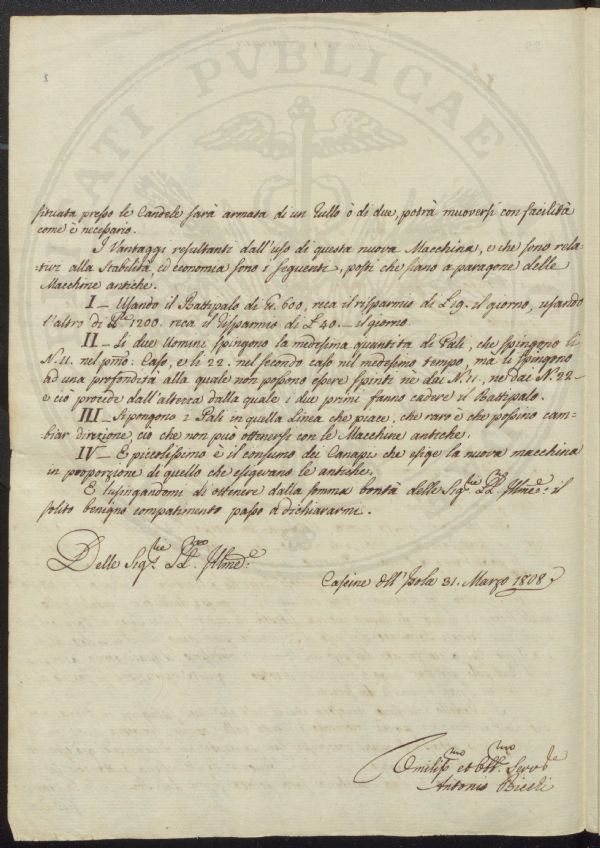 8
ATI PVBLICAE
situata presso le Candele sarà armata di un Rullo ò di due, potrà muoversi con facilità
come è necessario.
I Vantaggi resultanti dall'uso di questa nuova Macchina, e che sono rela-
tivi alla Stabilità, ed economia sono i seguenti, posti che siano a paragone delle
Macchine antiche.
I — Usando il Battipalo di 600, reca il risparmio di £ 19. il giorno, usando
l'altro di 1200. reca il risparmio di £ 40.— il giorno
II — Li due Uomini spingono la medesima quantità di Pali, che spingono li
N. 11. nel pmo: Caso, e li 22. nel secondo caso nel medesimo tempo, ma li spingono
ad una profondità alla quale non possono essere spinti ne dai N. 11., ne dai N. 22 -
e ciò procede dall'altezza dalla quale i due primi fanno cadere il Battipalo.
III — Si pongono i Pali in quella Linea che piace, che raro è che possino cam-
biar direzione, ciò che non può ottenersi con le Macchine antiche.
IV — E piccolissimo è il consumo dei Canapi che esige la nuova macchina
in proporzione di quello che esigevano le antiche.
E lusingandomi di ottenere dalla somma bontà delle Sigrie LL. Illme: il
solito benigno compatimento passo a dichiararmi.
Delle Sigrie LL. Illme:
Cascine dell'Isola 31. Marzo 1808
Umilissmo et Obbmo Servde
Antonio